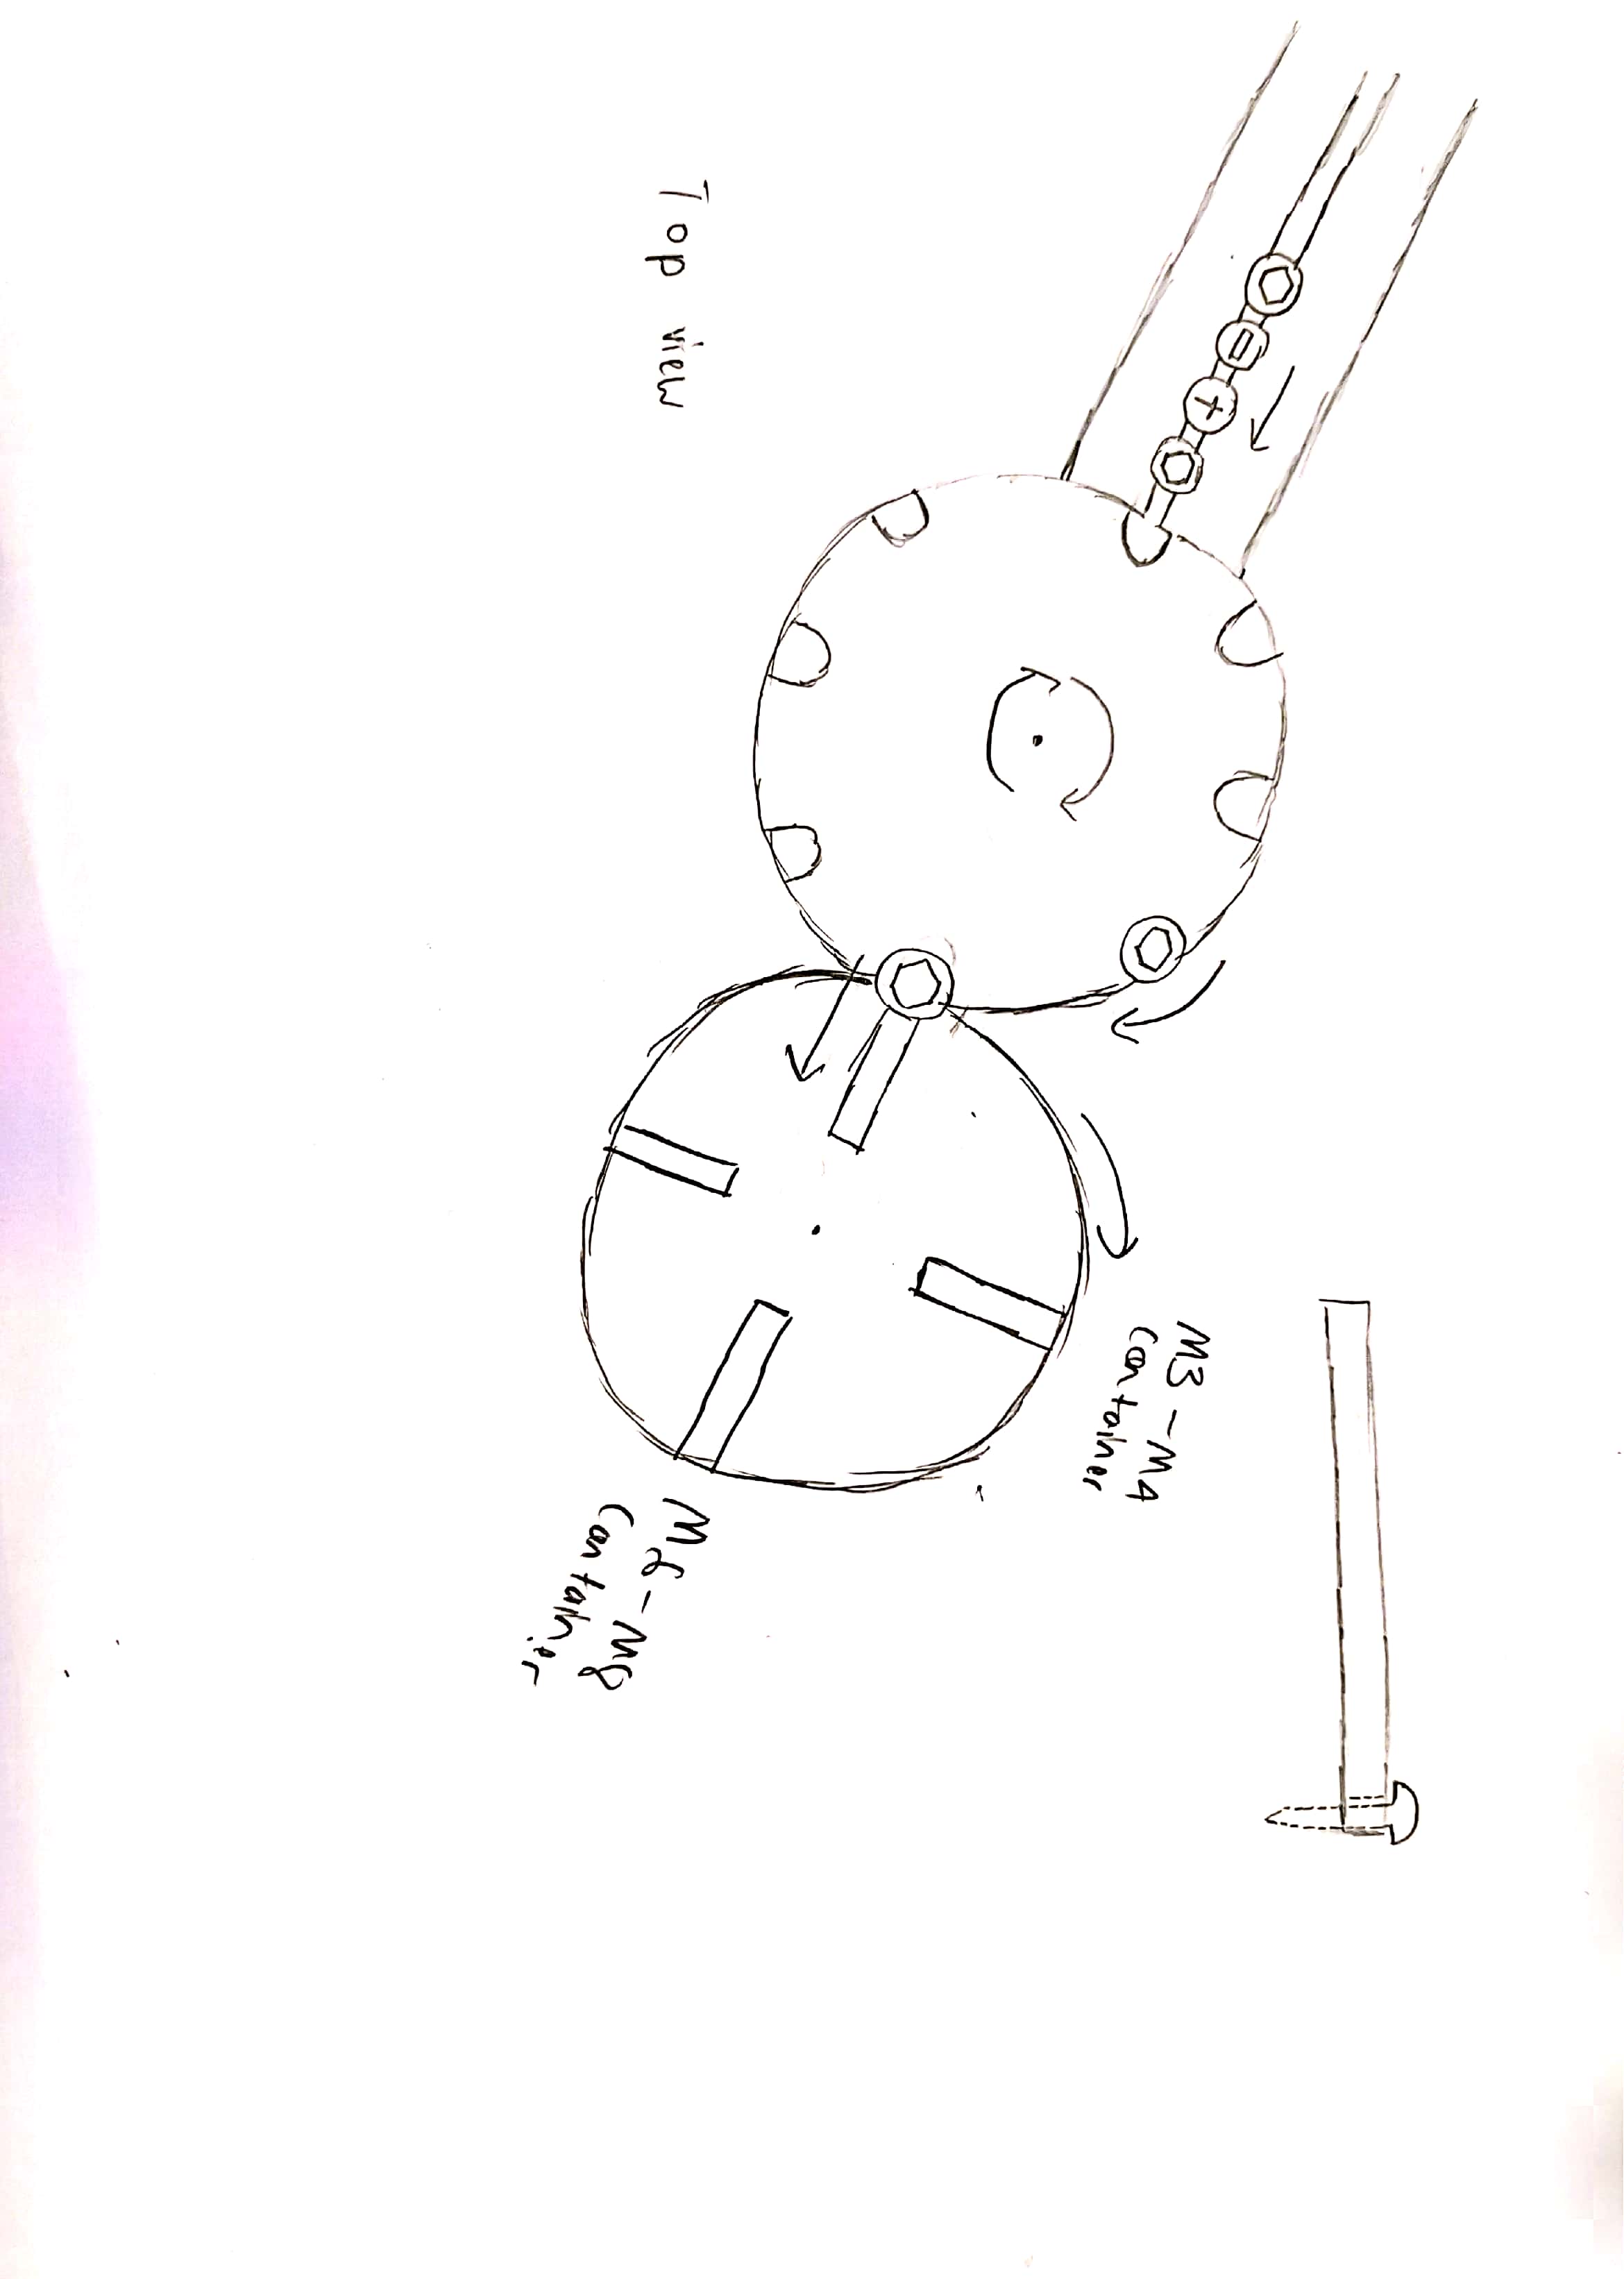 M3 - M4
Container
Top view
M6 - M8
Container